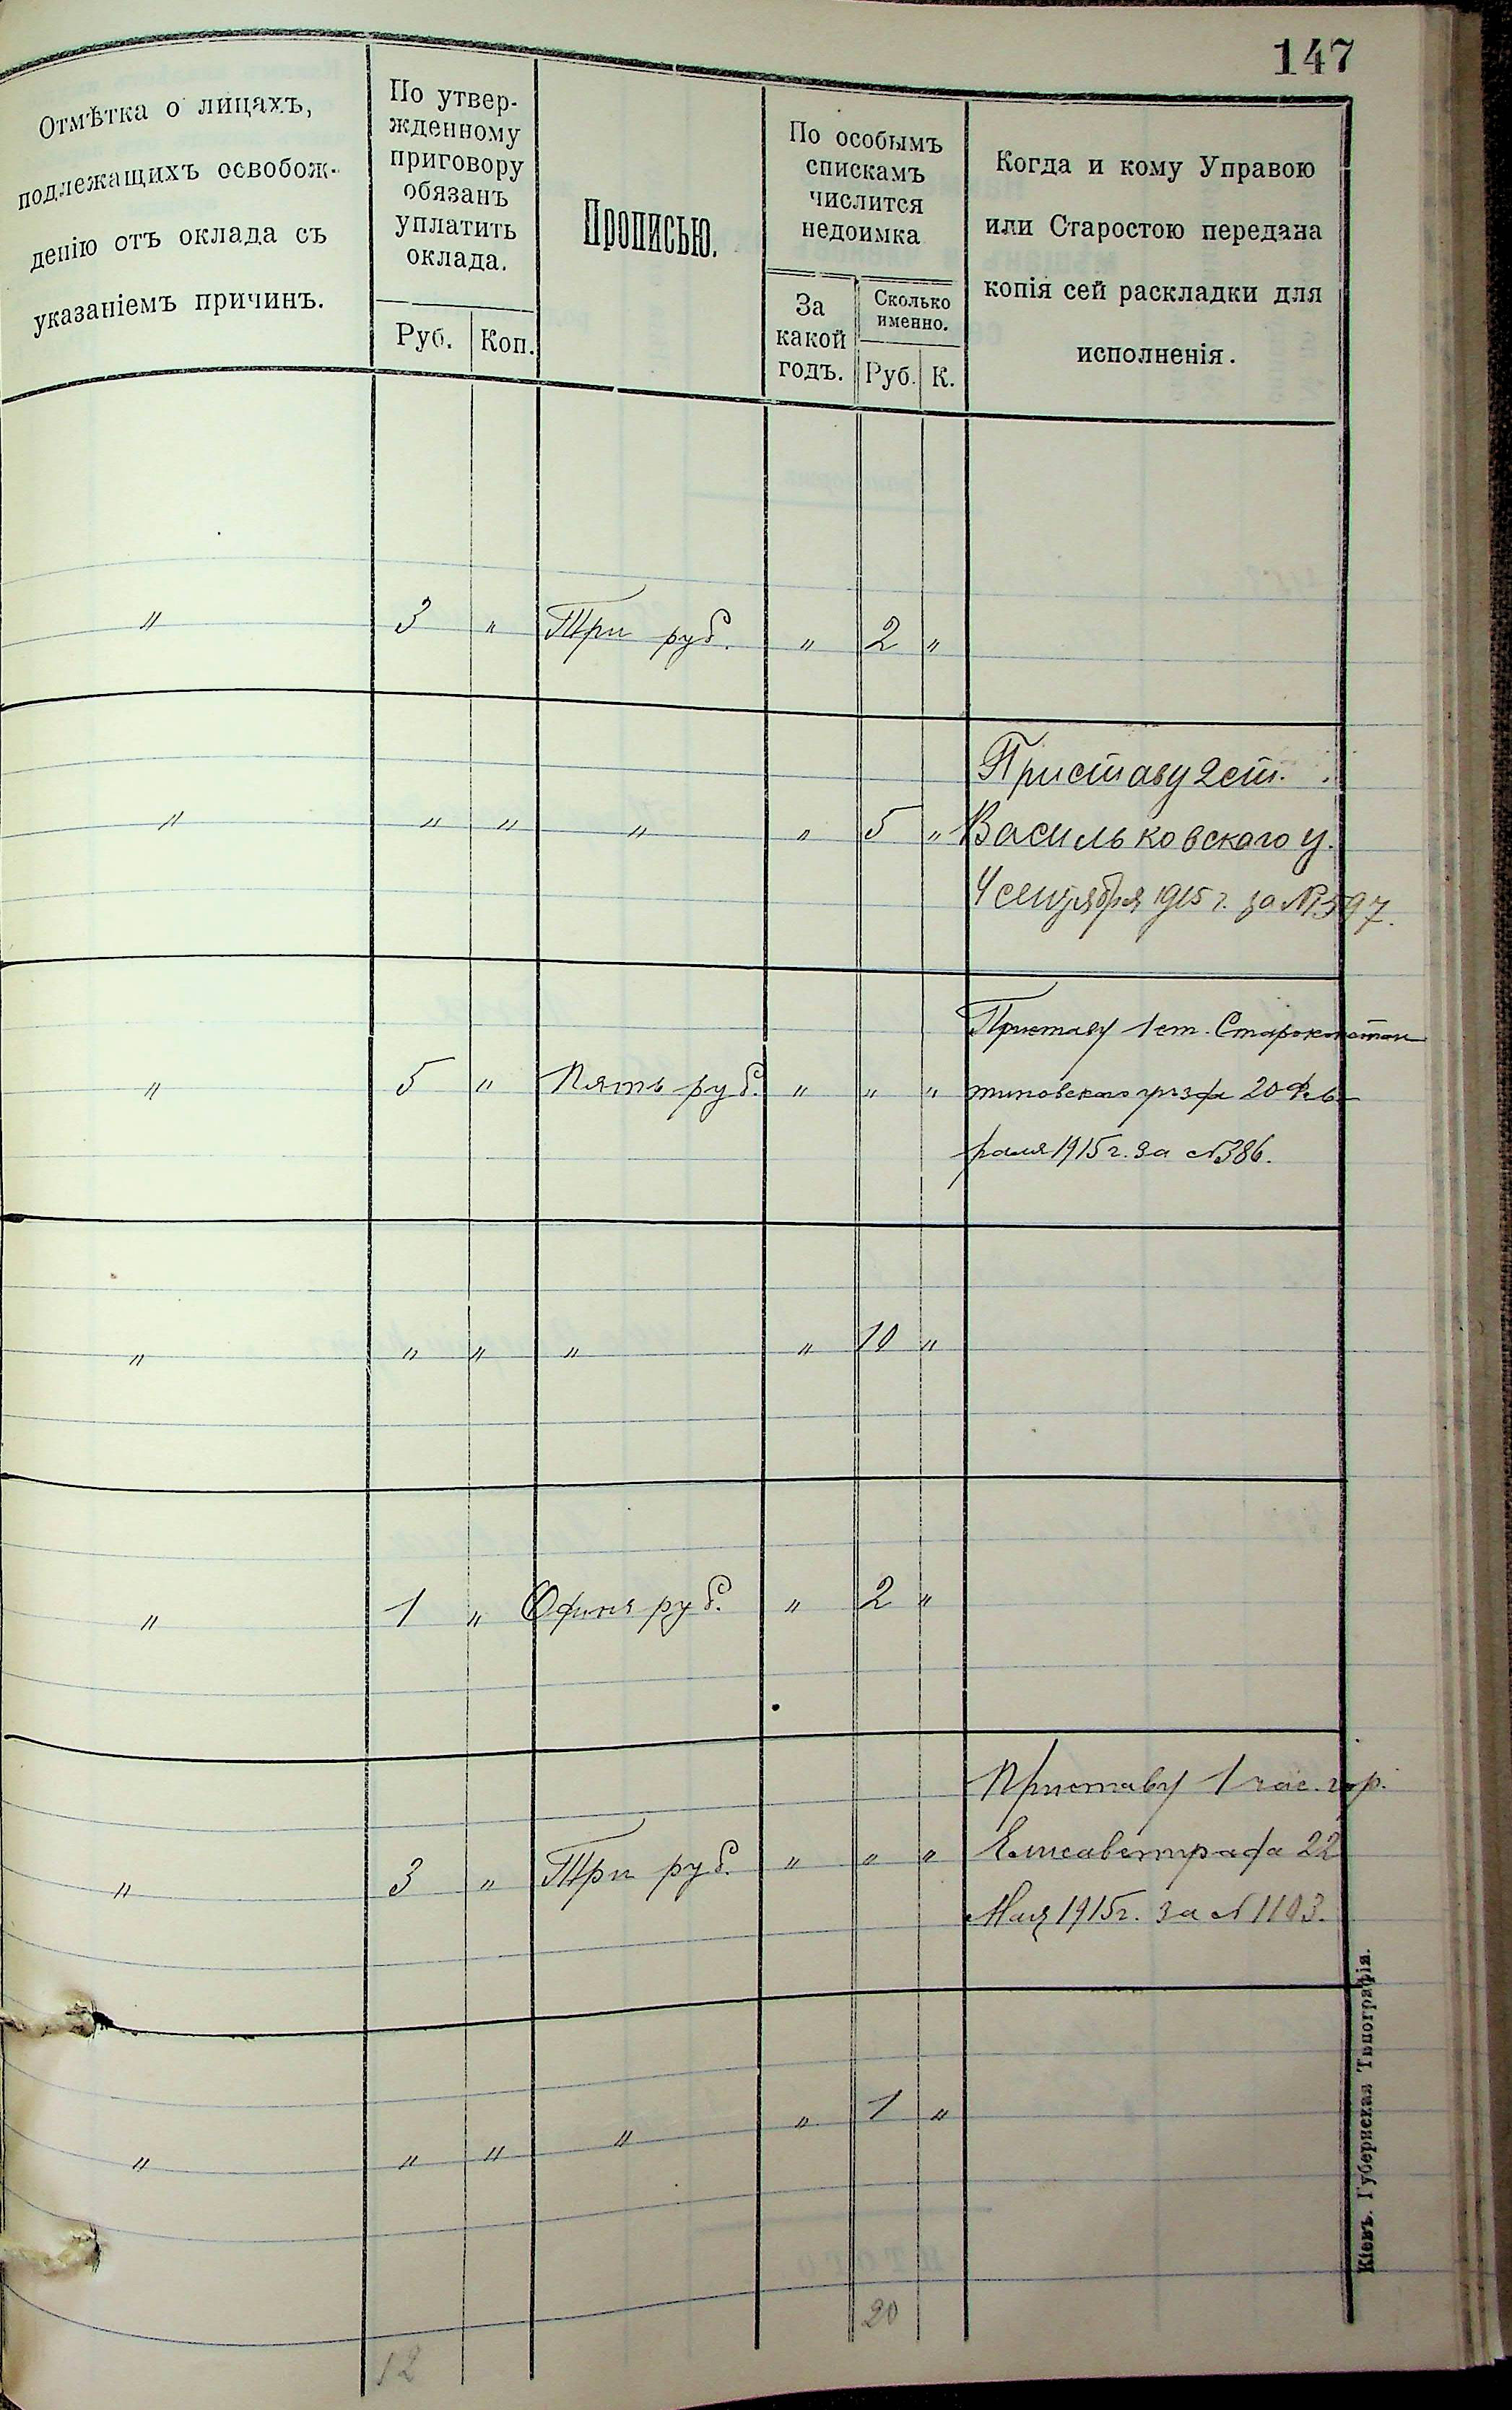 147
Отмѣтка о лицахъ,
подлежащихъ освобож-
денію отъ оклада съ
указаніемъ причинъ.
По утвер-
жденному
приговору
обязанъ
уплатить
оклада.
Руб. Коп.
Прописью.
По особымъ
спискамъ
числится
недоимка
За
какой
годъ.
Сколько
именно.
Руб. К.
Когда и кому Управою
или Старостою передана
копія сей раскладки для
исполненія.
" 3 " Три руб. " 2 "
" " " " " 5 "
Приставу 2 ст.
Васильковскаго у.
4 сентября 1915 г. за № 1597.
" 5 " Пять руб. " " "
Приставу 1 ст. Староконстан
тиновскаго уѣзда 20 Фев-
раля 1915 г. за № 386.
" " " " " 10 "
" 1 " Одинъ руб. " 2 "
" 3 " Три руб. " " "
Приставу 1 час. гор.
Елисаветграда 22
Мая 1915 г. за № 1103.
" " " " " 1 "
12 20
Кіевъ. Губернская Типографія.